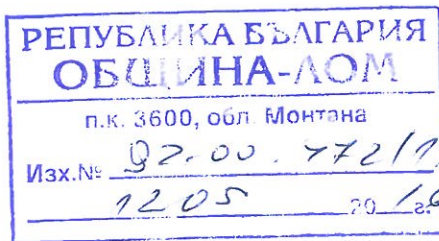 РЕПУБЛИКА БЪЛГАРИЯ
ОБЩИНА-ЛОМ
п.к. 3600, обл. Монтана
Изх.№ 92-00-172/1
1205 2016 г.